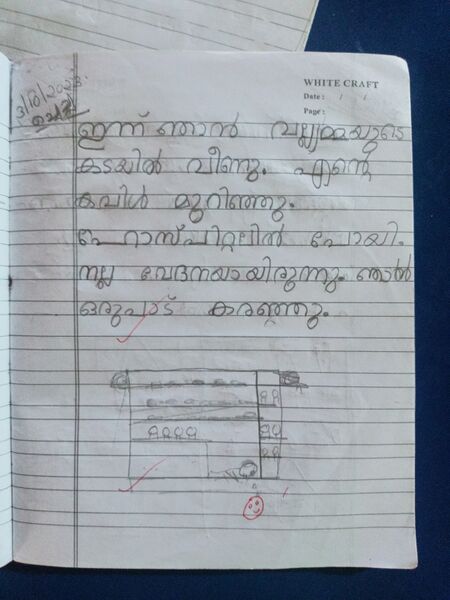 WHITE CRAFT
Date : / /
Page :
3/10/2023
ചൊവ്വ
ഇന്ന് ഞാൻ വല്ല്യമ്മയുടെ
കടയിൽ വീണു. എന്റെ
കവിൾ മുറിഞ്ഞു.
ഹോസ്പിറ്റലിൽ പോയി.
നല്ല വേദനയായിരുന്നു. ഞാൻ
ഒരുപാട് കരഞ്ഞു.